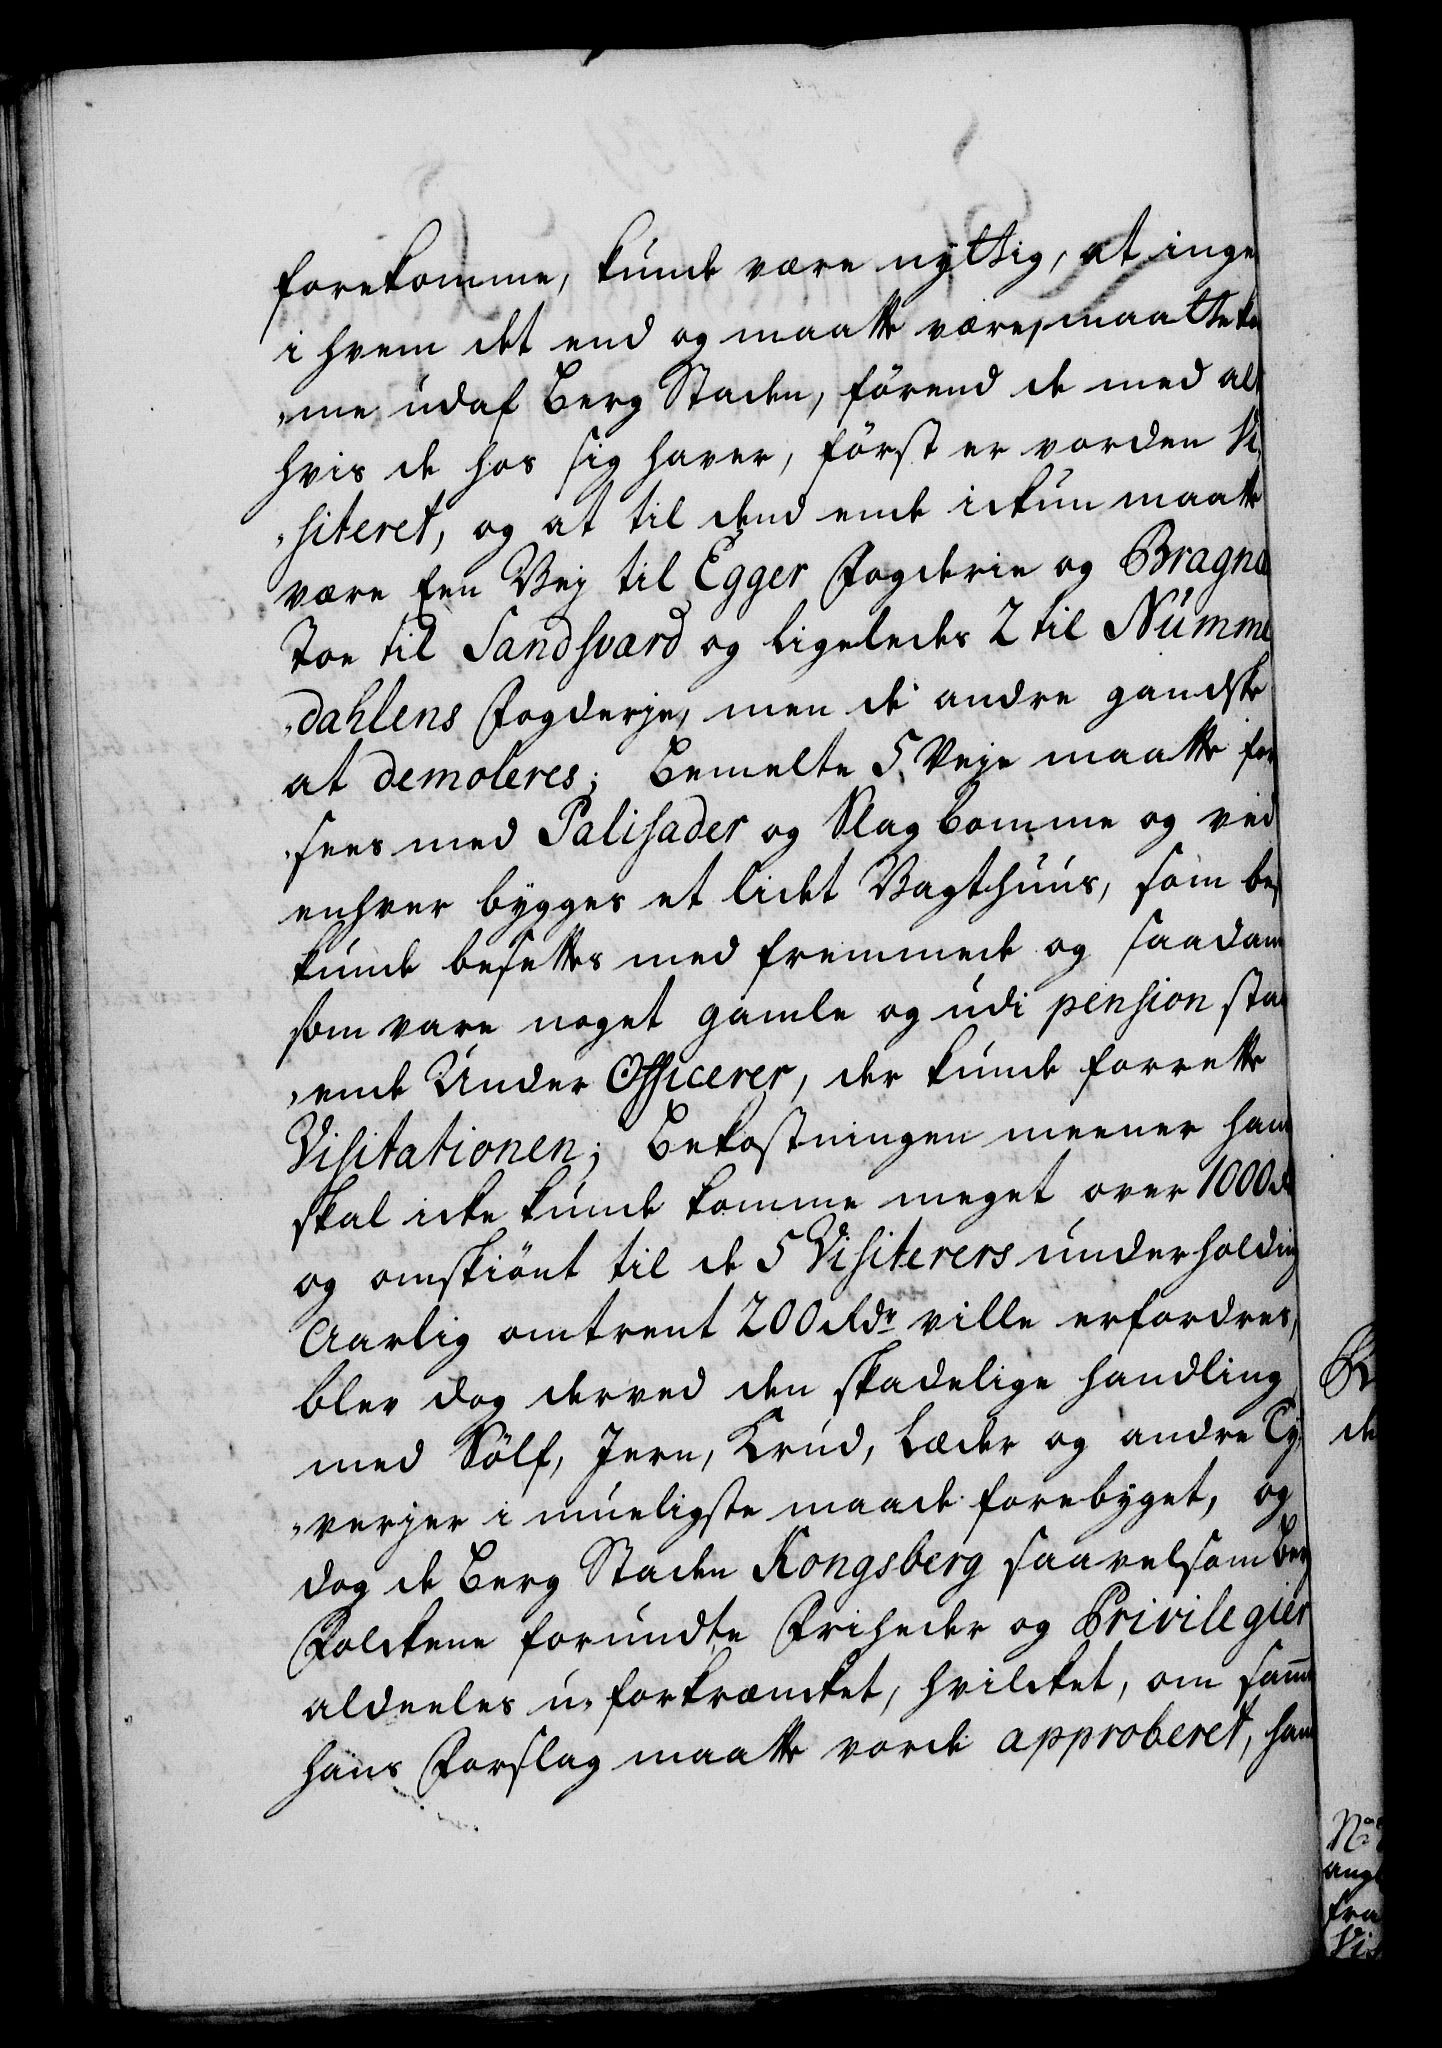 forekomme, kunde være nyttig, at inge
i hvem det end og maatte være, maatte ko
„me udaf Berg Staden, förend de med alt
hvis de hos sig haver, först er vorden Vi„
„siteret, og at til dend ende ickun maatte
være Een Vej til Egger Fogderie og Bragnæ
Toe til Sandsværd og ligeledes 2 til Numme
„dahlens Fogderje, men de andre gandske
at demoleres; Bemelte 5 Veje maatte for
„sees med Palisader og Slagbomme og ved
enhver bygges et lidet Vagthuus, som best
kunde besettes med fremmede og saadane
som vare noget gamle og udi pension staa
„ende Under Officerer, der kunde forrette
Visitationen; Bekostningen meener hand
skal icke kunde komme meget over 1000 Rd
og omskiönt til de 5 Visiterers underholding
Aarlig omtrent 200 Rdr ville erfordres,
blev dog derved den skadelige handling
med Sölf, Jern, Krud, Læder og andre Ty„
„verjer i mueligste maade forebyget, og
dog de Berg Staden Kongsberg saavelsom Berg
Folckene forundte Friheder og Privilegier
aldeeles u-forkræncket, hvilcket, om samme
hans Forslag maatte vorde approberet, hand
R
de
No
ang
fra
Vi